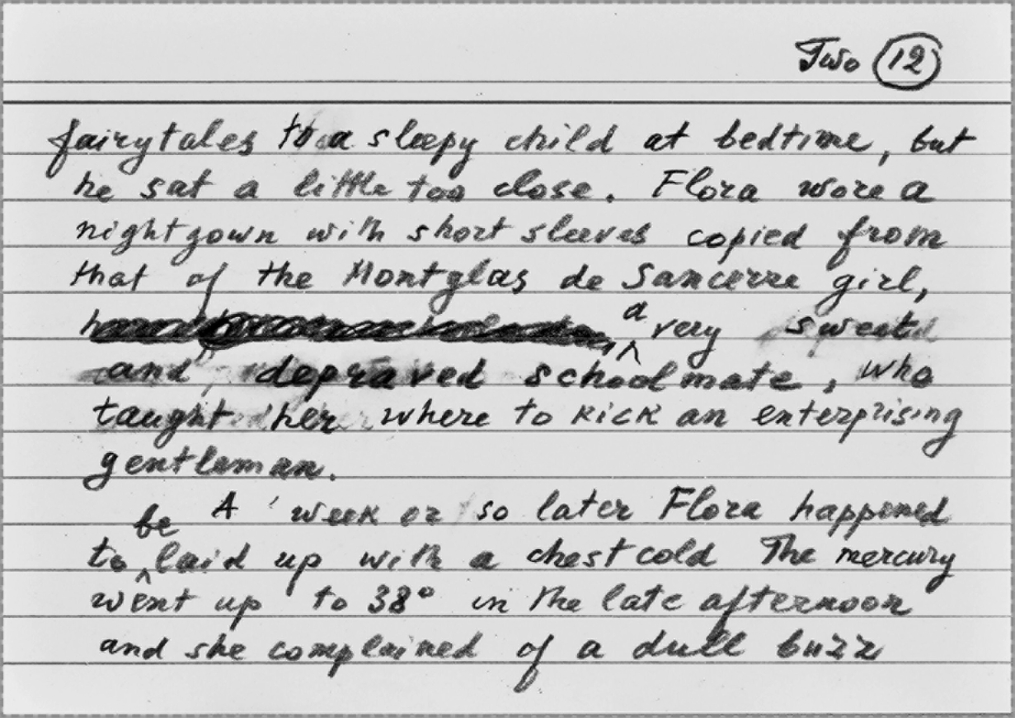 Two 12
fairytales to a sleepy child at bedtime, but
he sat a little too close. Flora wore a
nightgown with short sleeves copied from
that of the Montglas de Sancerre girl,
a very sweet
and depraved schoolmate, who
taught her where to kick an enterprising
gentleman.
A week or so later Flora happened
to be laid up with a chest cold The mercury
went up to 38° in the late afternoon
and she complained of a dull buzz